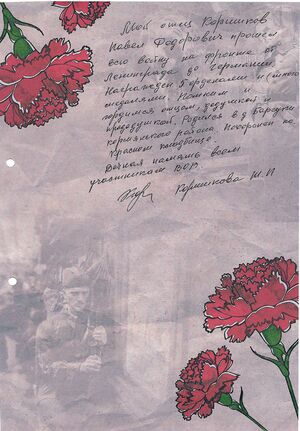 Мой отец Коршиков
Павел Федорович прошел
всю войну на фронте от
Ленинграда до Германии.
Награжден 5 орденами и
медалями. Помним и
гордимся отцом, дедушкой и
прадедушкой. Родился в д.
района. Похоронен на
Красном кладбище.
Вечная память всем
участникам ВОВ.
Коршикова М. П